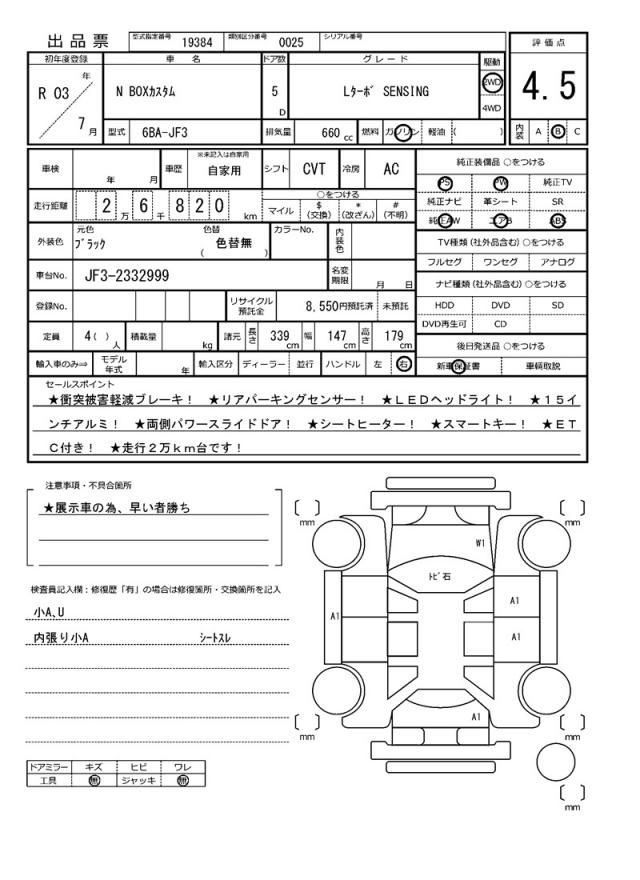 出品票 型式指定番号 19384 類別区分番号 0025 シリアル番号
評価点
4.5
内装 A B C
初年度登録 車名 ドア数 グレード 駆動
R 03 年 7 月
N BOXカスタム 5 D Lターボ SENSING 2WD 4WD
型式 6BA-JF3 排気量 660 cc 燃料 ガソリン 軽油 ( )
車検 年 月 車歴 ※未記入は自家用 自家用 シフト CVT 冷房 AC
走行距離 2 万 6 千 8 2 0 km
○をつける
マイル $(交換) *(改ざん) #(不明)
外装色 元色 ブラック 色替 色替無 ( ) カラーNo. 内装色
車台No. JF3-2332999 名変期限 月 日
登録No. リサイクル預託金 8,550円預託済 未預託
定員 4( ) 人 積載量 kg 諸元 長さ 339 cm 幅 147 cm 高さ 179 cm
輸入車のみ⇒ モデル年式 年 輸入区分 ディーラー 並行 ハンドル 左 右
純正装備品 ○をつける
PS PW 純正TV
純正ナビ 革シート SR
純正AW エアB ABS
TV種類(社外品含む)○をつける
フルセグ ワンセグ アナログ
ナビ種類(社外品含む)○をつける
HDD DVD SD
DVD再生可 CD
後日発送品 ○をつける
新車保証書 車輌取説
セールスポイント
★衝突被害軽減ブレーキ! ★リアパーキングセンサー! ★LEDヘッドライト! ★15イ
ンチアルミ! ★両側パワースライドドア! ★シートヒーター! ★スマートキー! ★ET
C付き! ★走行2万km台です!
注意事項・不具合箇所
★展示車の為、早い者勝ち
検査員記入欄:修復歴「有」の場合は修復箇所・交換箇所を記入
小A､U
内張り小A シートスレ
ドアミラー キズ ヒビ ワレ
工具 無 ジャッキ 無
mm
mm
W1
トビ石
A1
A1
A1
A1
mm
mm
mm